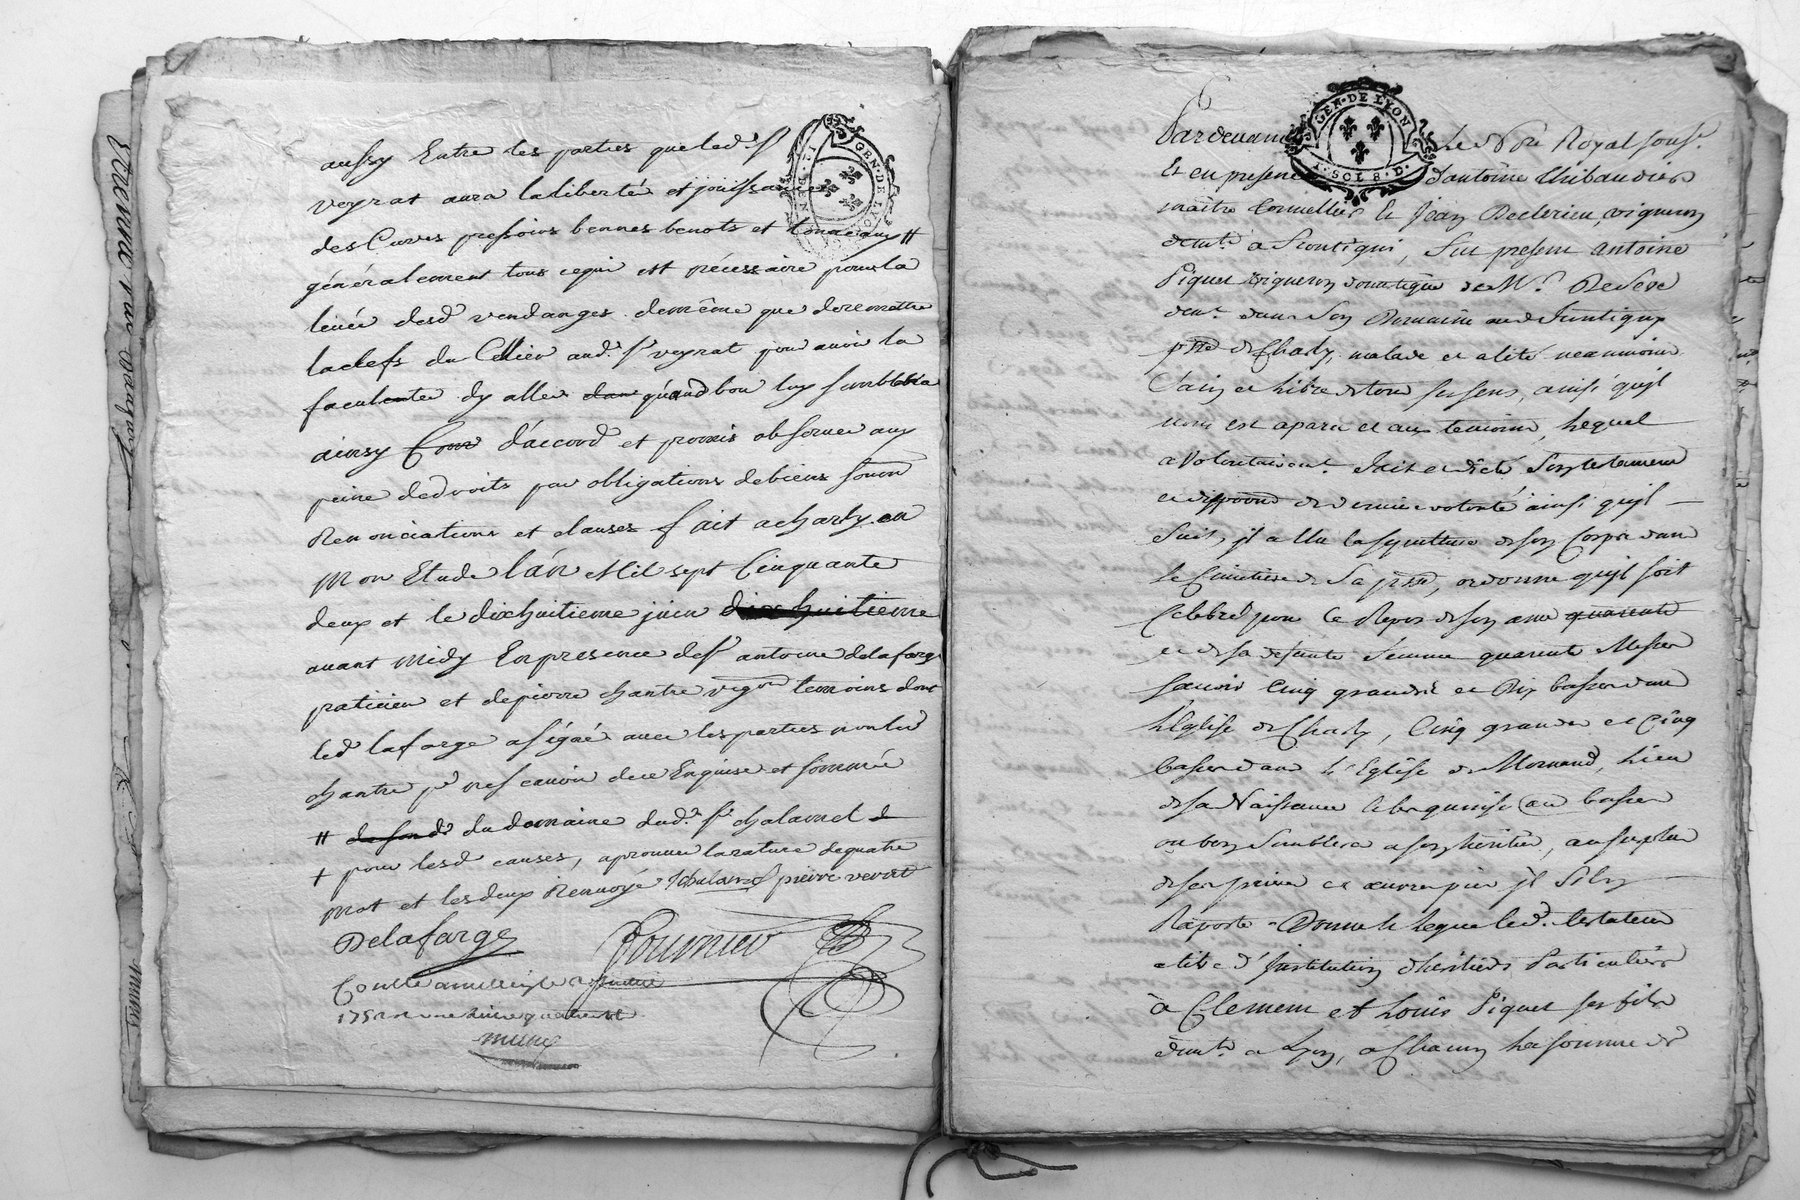 aussy Entre les parties que led. Sr
veyrat aura la liberté et jouissance
des Cuves pressoirs bennes benots et tonneaux #
généralement tous cequi est nécessaire pour la
levée desd. vendanges demême que deremettre
la clefs du Cellier aud. Sr veyrat pour avoir la
facultée dy aller dans quand bon luy semblera
ainsy Com d'accord et promis observer aux
peine dedroits par obligations debiens soumn
Renonciations et clauses fait acharly en
Mon Etude l'an Mil sept Cinquante
deux et le dixhuitieme juin dixhuitieme
avant Midy En presence de Sr antoine delafarge
praticien et depierre chantre vigron temoins dont
led lafarge asigné avec les parties non led
chantre pr ne scavoir dece Enquise et sommé
# de fond dudomaine dud. Sr chalamel d
+ pour lesd causes, aprouvé larature dequatre
Mot et les deux Renvoye chalamel pierre verat
Delafarge Fournier
Conllé a
1752
GEN. DE LYON
Pardevant Le No.re Royal souss.
Et en presence d'antoine Thibaudier
maitre Tonnellier Et Jean Declerieu, vigneron
demt. a Frontigni, fut present antoine
Piquet vigneron domestique de Mr. Deseve
demt. dans son Domaine aud Frontigny
psse de Charly, malade et alité neanmoins
Sain et Libre de tous ses sens, ainsi quyl
nous est aparu et aux temoins, Lequel
a Volontairemt. fait et dicté son testament
et disposition de derniere volonté ainsi quyl
Suit, jl a Elu la sepulture de son Corps dans
le Cimetiere de Sa psse, ordonne quyl soit
Celebré pour Le Repos de son ame quarente
et de sa defunte femme quarente Messes
Sçavoir Cinq grandes et Dix basses dans
L'Eglise de Charly, Cinq grandes et Cinq
basses dans L'Eglise de Mornand, Lieu
de sa Naissance et les quinse basses
ou bon Semblera a son heritier, au surplus
de ses prieres et œuvres pies jl S'en
Raporte = Donne Legue led. testateur
a titre d'Institution d'heritiers Particuliers
à Clement et Louis Piquet ses fils
demts. a Lyon, a Chacun La somme de
GEN. DE LYON
1. SOL 8. D.